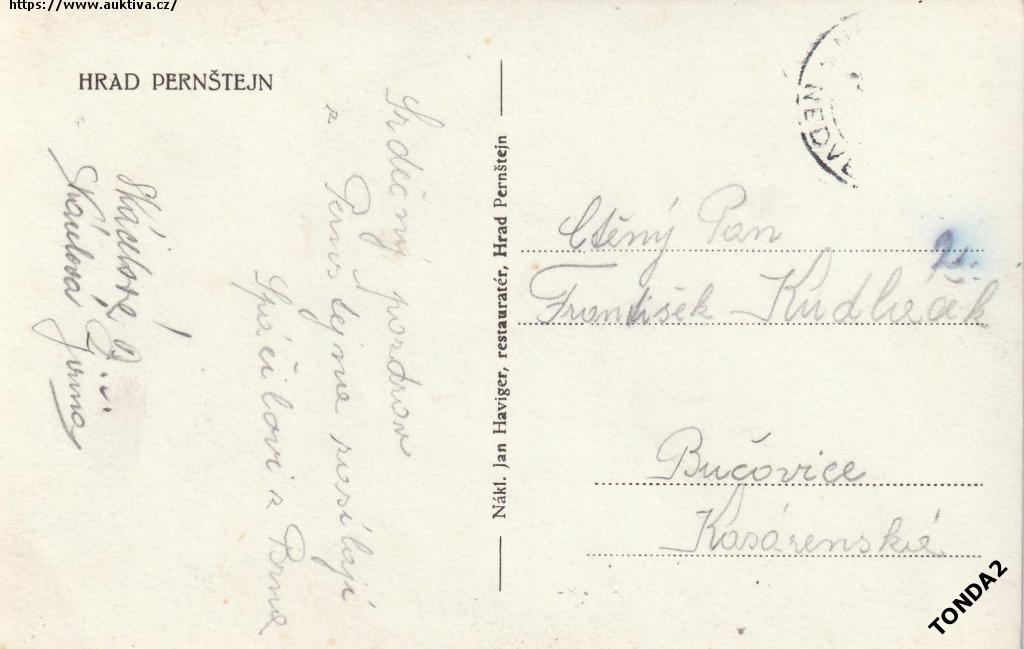 https://www.auktiva.cz/
HRAD PERNŠTEJN
Srdečný pozdrav
z Pernštejna zasílají
Spáčilovi z Brna
Jiřina
Nákl. Jan Haviger, restauratér, Hrad Pernštejn
NEDVĚ
Ctěný Pan
František Kudláček
Bučovice
Kasárenská
TONDA2